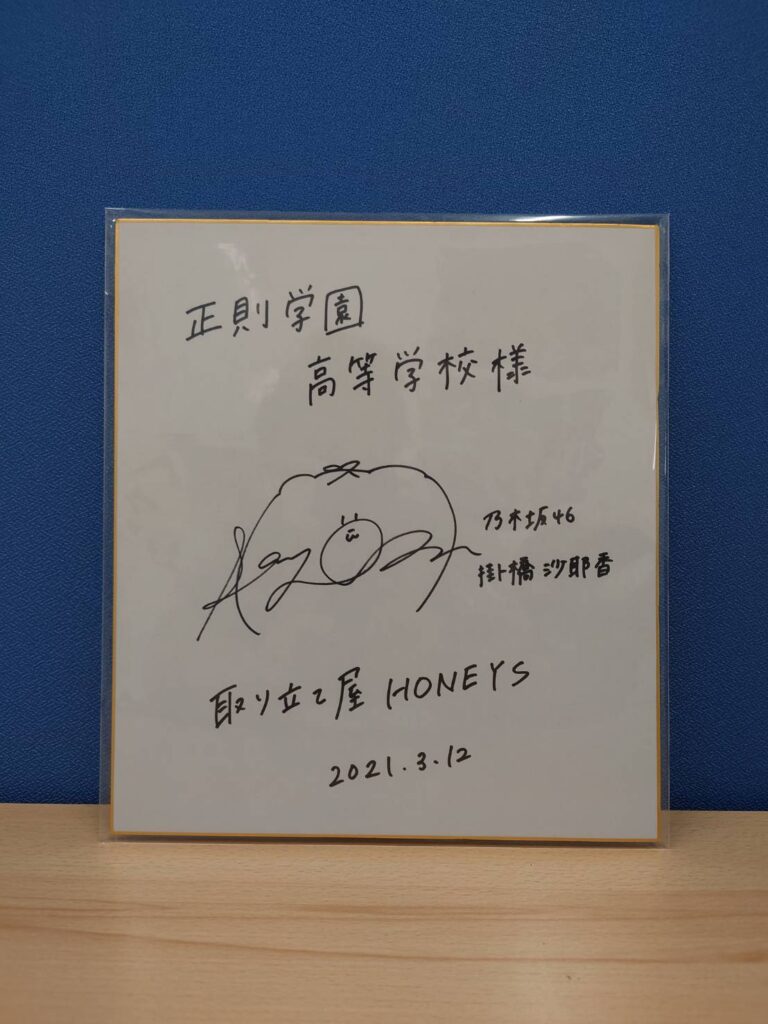 正則学園
高等学校様
乃木坂46
掛橋 沙耶香
取り立て屋 HONEYS
2021.3.12